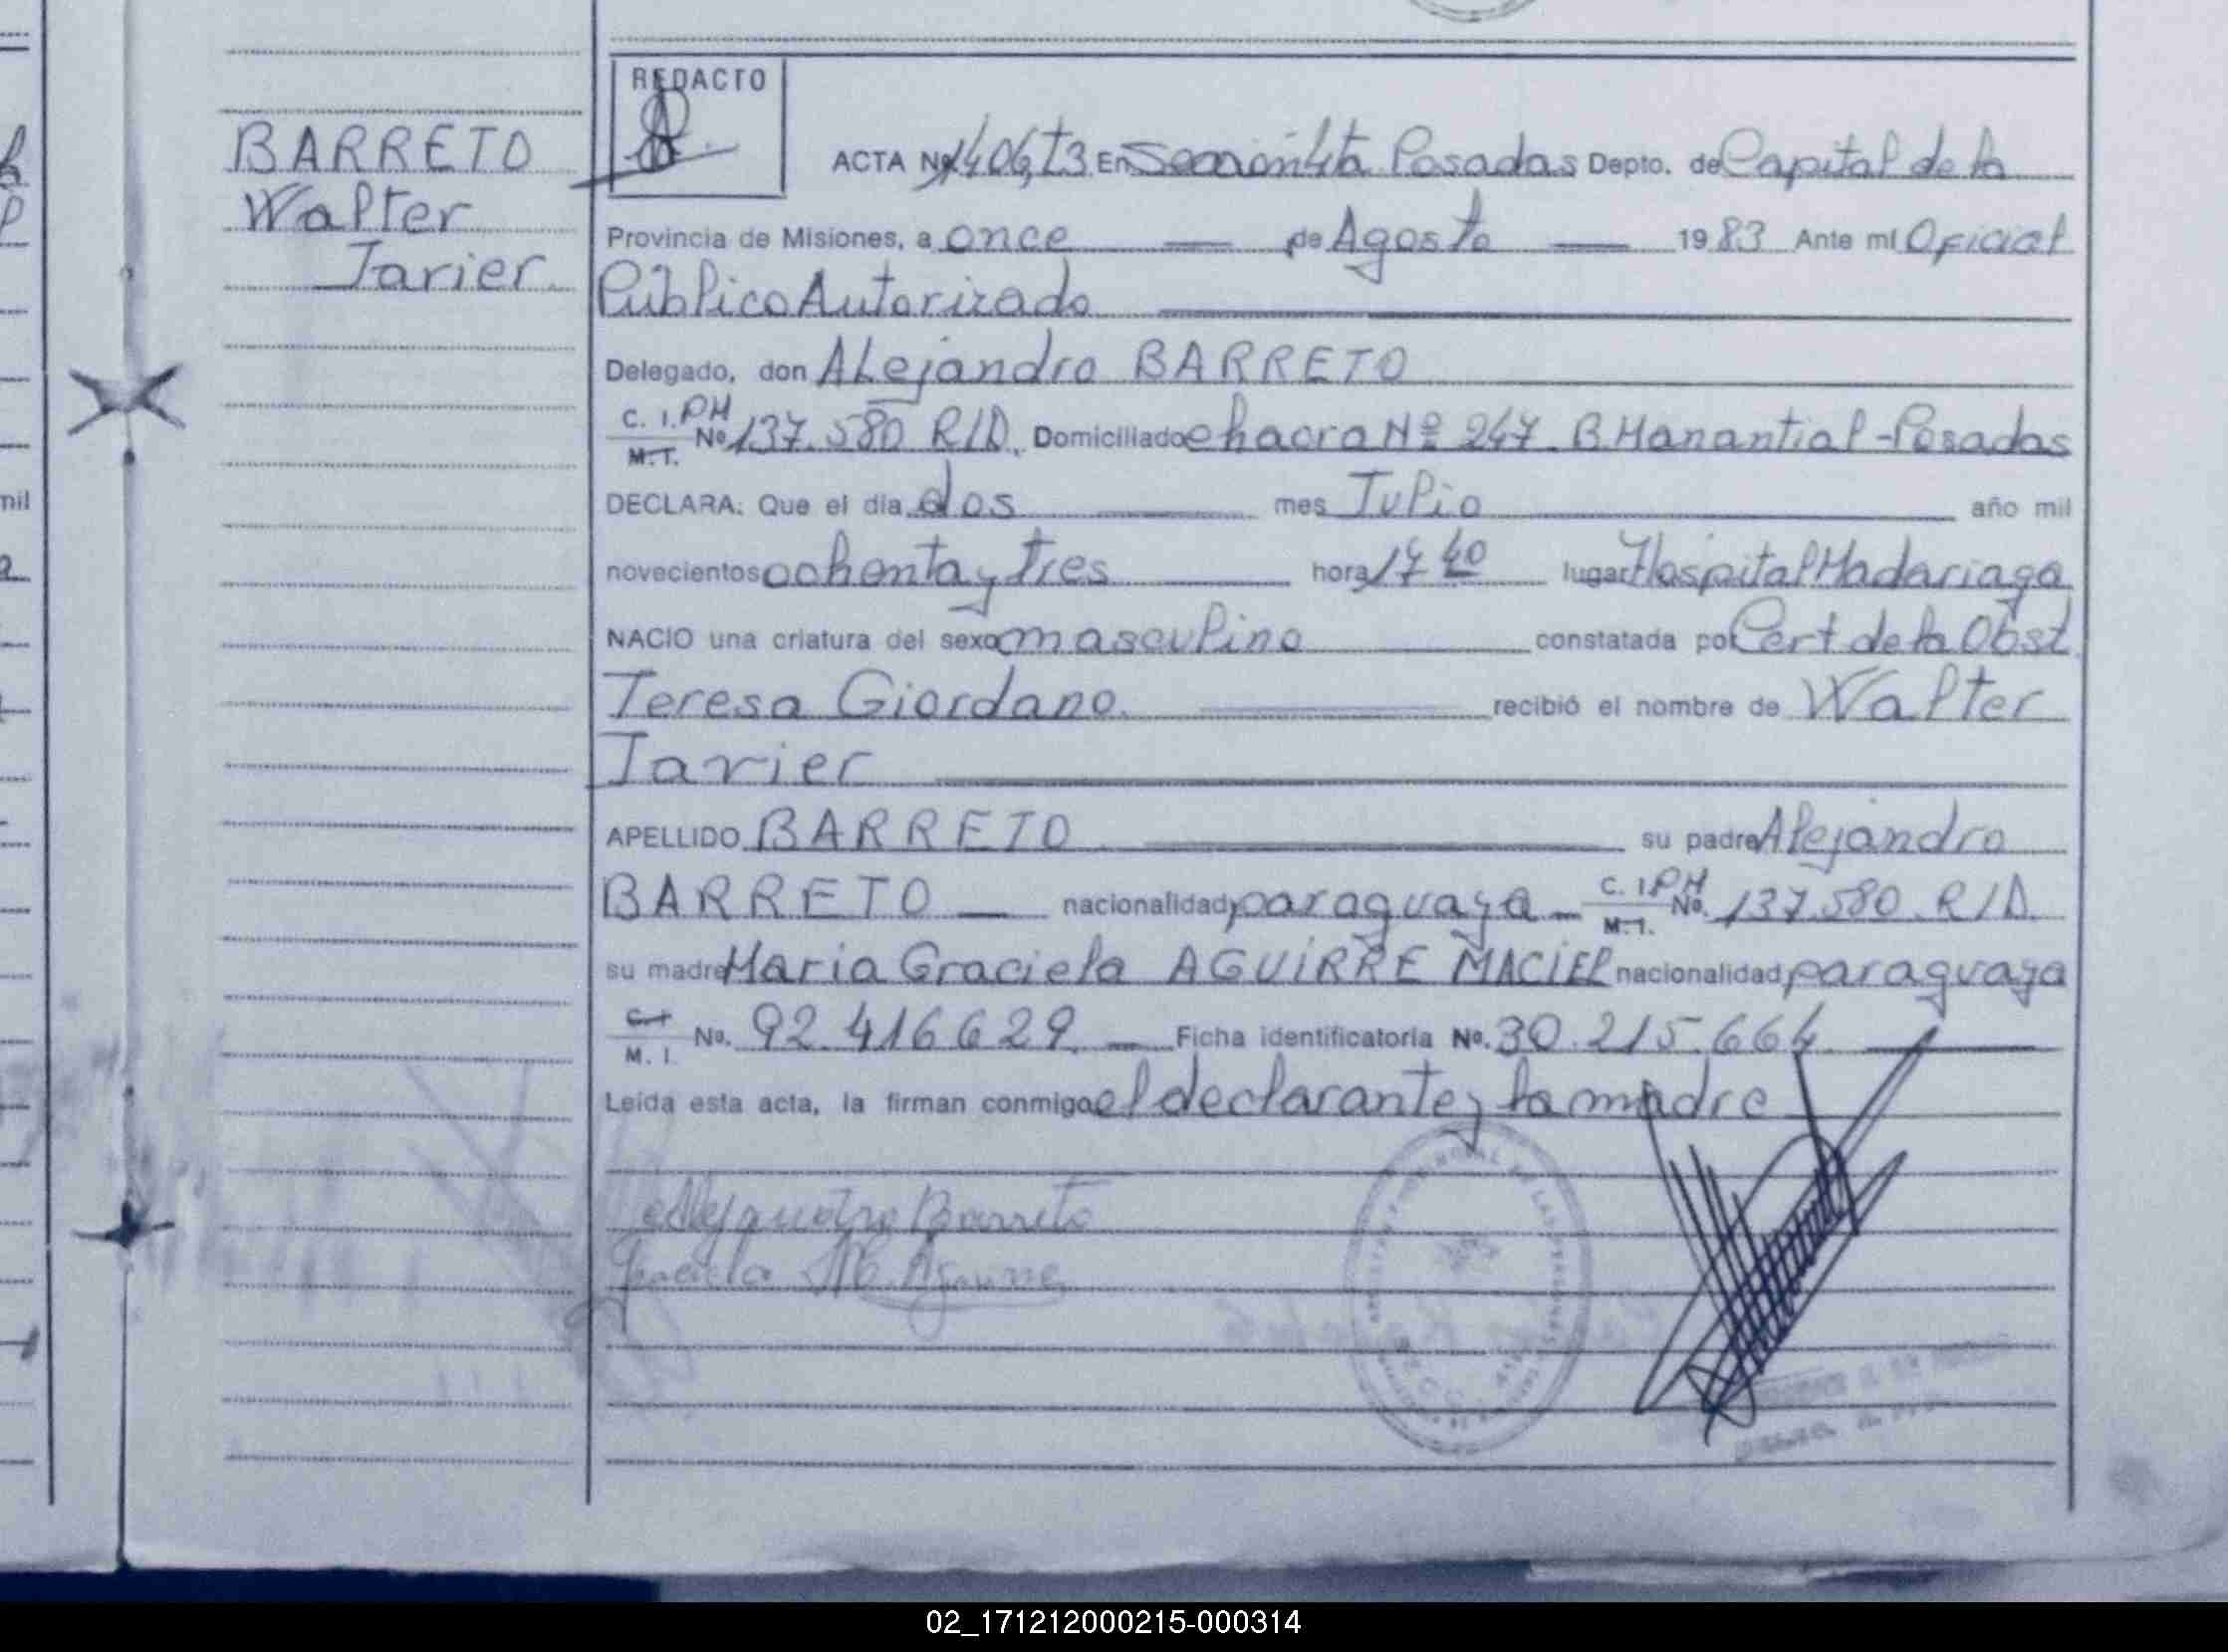 BARRETO
Walter
Javier.
REDACTO
ACTA Nº 1406, T3 En Sección 4ta Posadas Depto. de Capital de la
Provincia de Misiones, a once — de Agosto — 1983 Ante mí Oficial
Público Autorizado
Delegado, don ALejandro BARRETO
C. I. PM
M.T. Nº 137.580 R/D, Domiciliado chacra Nº 247. B. Manantial - Posadas
DECLARA: Que el día dos mes Julio año mil
novecientos ochenta y tres hora 17 40 lugar Hospital Madariaga
NACIO una criatura del sexo masculino constatada por Cert de la Obst.
Teresa Giordano. recibió el nombre de Walter
Javier
APELLIDO BARRETO su padre Alejandro
BARRETO — nacionalidad paraguaya - C. I. PM
M.I. Nº. 137.580. R/D.
su madre Maria Graciela AGUIRRE MACIEL nacionalidad paraguaya
C.I
M. I. Nº. 92.416629. — Ficha identificatoria Nº. 30.215.664
Leída esta acta, la firman conmigo el declarante y la madre
Alejandro Barreto
Graciela M. Aguirre
mil
02_171212000215-000314